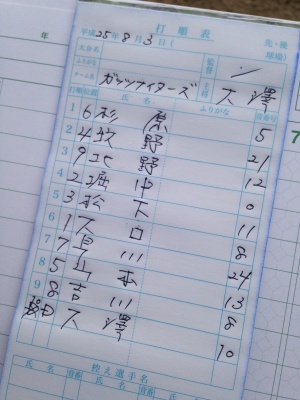 打順表
平成25年8月3日( 先・後
大会名 球場)
ふりがな 監督
チーム名 ガッツナイターズ 主将 大澤
打順 位置 氏名 ふりがな 背番号
1 6 杉原 5
2 4 牧野 21
3 9 北野 12
4 2 堀中 0
5 3 松 11
6 1 口 8
7 7 川 24
8 5 山本 13
9 8 吉川 8
大澤 10
控え選手名
氏名 背番 氏名 背番
年
7